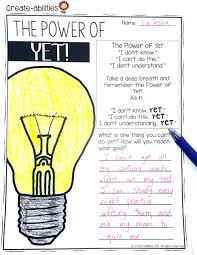 Create-abilities
Name: La Tesha
THE POWER OF
YET!
The Power of Yet
"I don't know."
"I can't do this."
"I don't understand."
Take a deep breath and
remember the Power of
Yet!
As in:
"I don't know... YET."
"I can't do this... YET."
"I don't understanding... YET."
What is one thing you can't
do yet? How will you reach
your goal?
I can't get all
my spelling words
right on my test.
I can study every
night, practice
writing them, and
ask my mom to
quiz me.